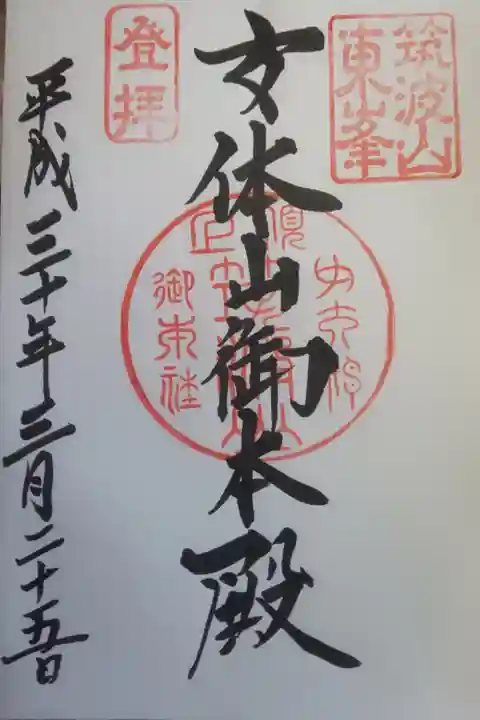 筑波山
東峯
女体山御本殿
登拝
平成三十年三月二十五日